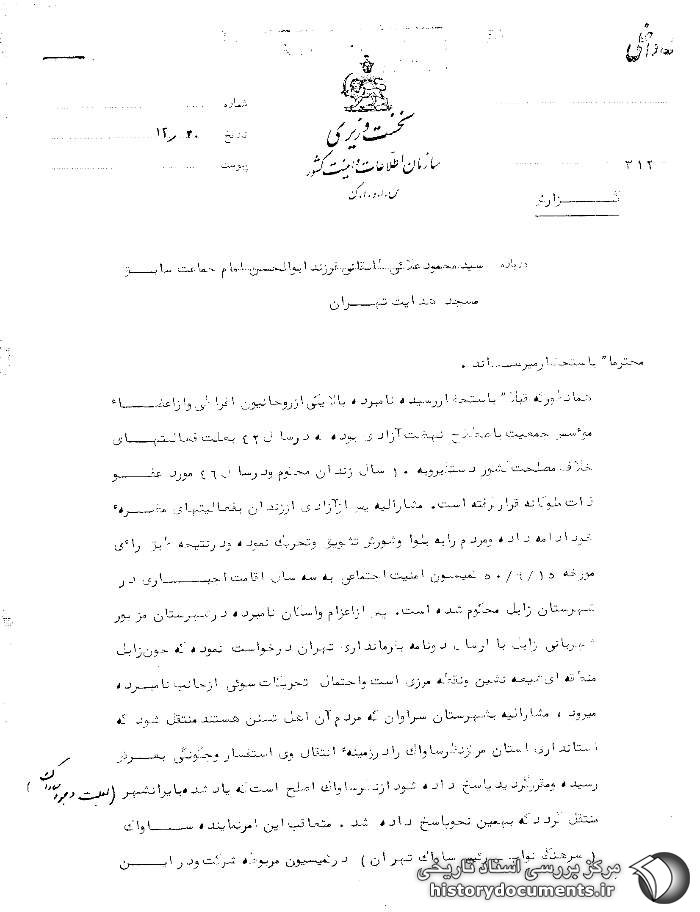 نخست وزیری
سازمان اطلاعات و امنیت کشور
س.ا.و.ا.ک
شماره
تاریخ ۲۰ ر ۱۲
پیوست
۳۱۲
گزارش
درباره سید محمود علائی طالقانی فرزند ابوالحسن امام جماعت سابق
مسجد هدایت تهران
محترما" باستحضار میرساند .
همانطورکه قبلا" باستحضار رسیده نامبرده بالا یکی از روحانیون افراطی و از اعضاء
موسس جمعیت باصطلاح نهضت آزادی بوده که در سال ۴۲ بعلت فعالیتهای
خلاف مصلحت کشور دستگیر و به ۱۰ سال زندان محکوم و در سال ۴۶ مورد عفو
ذات ملوکانه قرار گرفته است. مشارالیه پس از آزادی از زندان بفعالیتهای مضره
خود ادامه داده و مردم را به بلوا و شورش تشویق و تحریک نموده و در نتیجه طبق رای
مورخه ۵۰/۹/۱۵ کمیسیون امنیت اجتماعی به سه سال اقامت اجباری در
شهرستان زابل محکوم شده است. پس از اعزام واسکان نامبرده در شهرستان مزبور
شهربانی زابل با ارسال دو نامه بفرمانداری تهران درخواست نموده که چون زابل
منطقه ای شیعه نشین و نقطه مرزی است و احتمال تحریکات سوئی از جانب نامبرده
میرود ، مشارالیه بشهرستان سراوان که مردم آن اهل تسنن هستند منتقل شود که
استانداری استان مرکز نظر ساواک را در زمینه انتقال وی استفسار و چگونگی بعرض
رسیده و مقرر گردید پاسخ داده شود از نظر ساواک اصلح است که یاد شده بایرانشهر
منتقل گردد که بهمین نحو پاسخ داده شد . متعاقب این امر نماینده ساواک
( سرهنگ نواب رئیس ساواک تهران ) در کمیسیون مربوطه شرکت و در این
مرکز بررسی اسناد تاریخی
historydocuments.ir